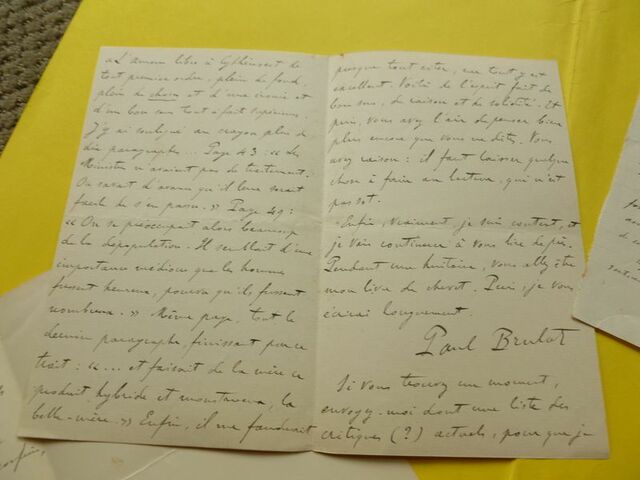 « L'amour libre à Cythéuscet de
tout premier ordre, plein de fond,
plein de choses et d'une ironie et
d'un bon sens tout à fait supérieurs.
J'y ai souligné au crayon plus de
dix paragraphes... Page 43 : « Les
Ministres n'avaient pas de traitement.
On savait d'avance qu'il leur serait
facile de s'en passer. » Page 49 :
« On se préoccupait alors beaucoup
de la dépopulation. Il semblait d'une
importance médiocre que les hommes
fussent heureux, pourvu qu'ils fussent
nombreux. » Même page, tout le
dernier paragraphe, finissant par ce
trait : «... et faisait de la mère ce
produit hybride et monstrueux, la
belle-mère. » Enfin, il me faudrait
presque tout citer, car tout y est
excellent. Voilà de l'esprit fait de
bon sens, de raison et de solidité. Et
puis, vous avez l'air de penser bien
plus encore que vous ne dites. Vous
avez raison : il faut laisser quelque
chose à faire au lecteur, qui n'est
pas sot.
Enfin, vraiment, je suis content, et
je vais continuer à vous lire de près.
Pendant une huitaine, vous allez être
mon livre de chevet. Puis, je vous
écrirai longuement.
Paul Brulat
Si vous trouvez un moment,
envoyez-moi donc une liste des
critiques (?) actuels, pour que je